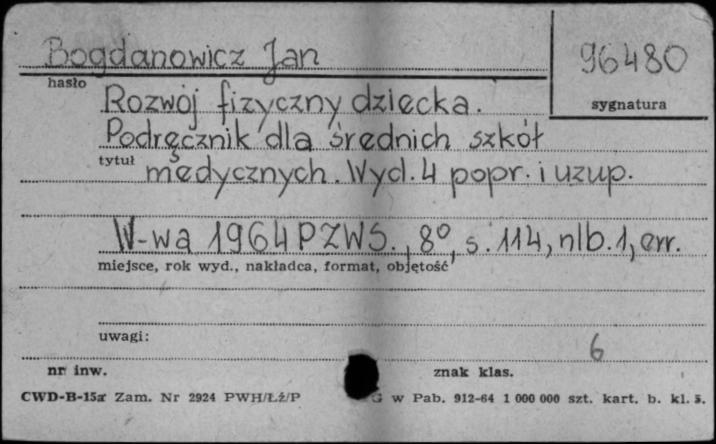 Bogdanowicz Jan
96480
hasło
sygnatura
Rozwój fizyczny dziecka.
Podręcznik dla średnich szkół
tytuł
medycznych. Wyd. 4 popr. i uzup.
W-wa 1964 PZWS., 8°, s. 114, nlb. 1, err.
miejsce, rok wyd., nakładca, format, objętość
uwagi:
6
nr inw.
znak klas.
CWD-B-15a Zam. Nr 2924 PWH/Łż/P
G w Pab. 912-64 1 000 000 szt. kart. b. kl. 5.